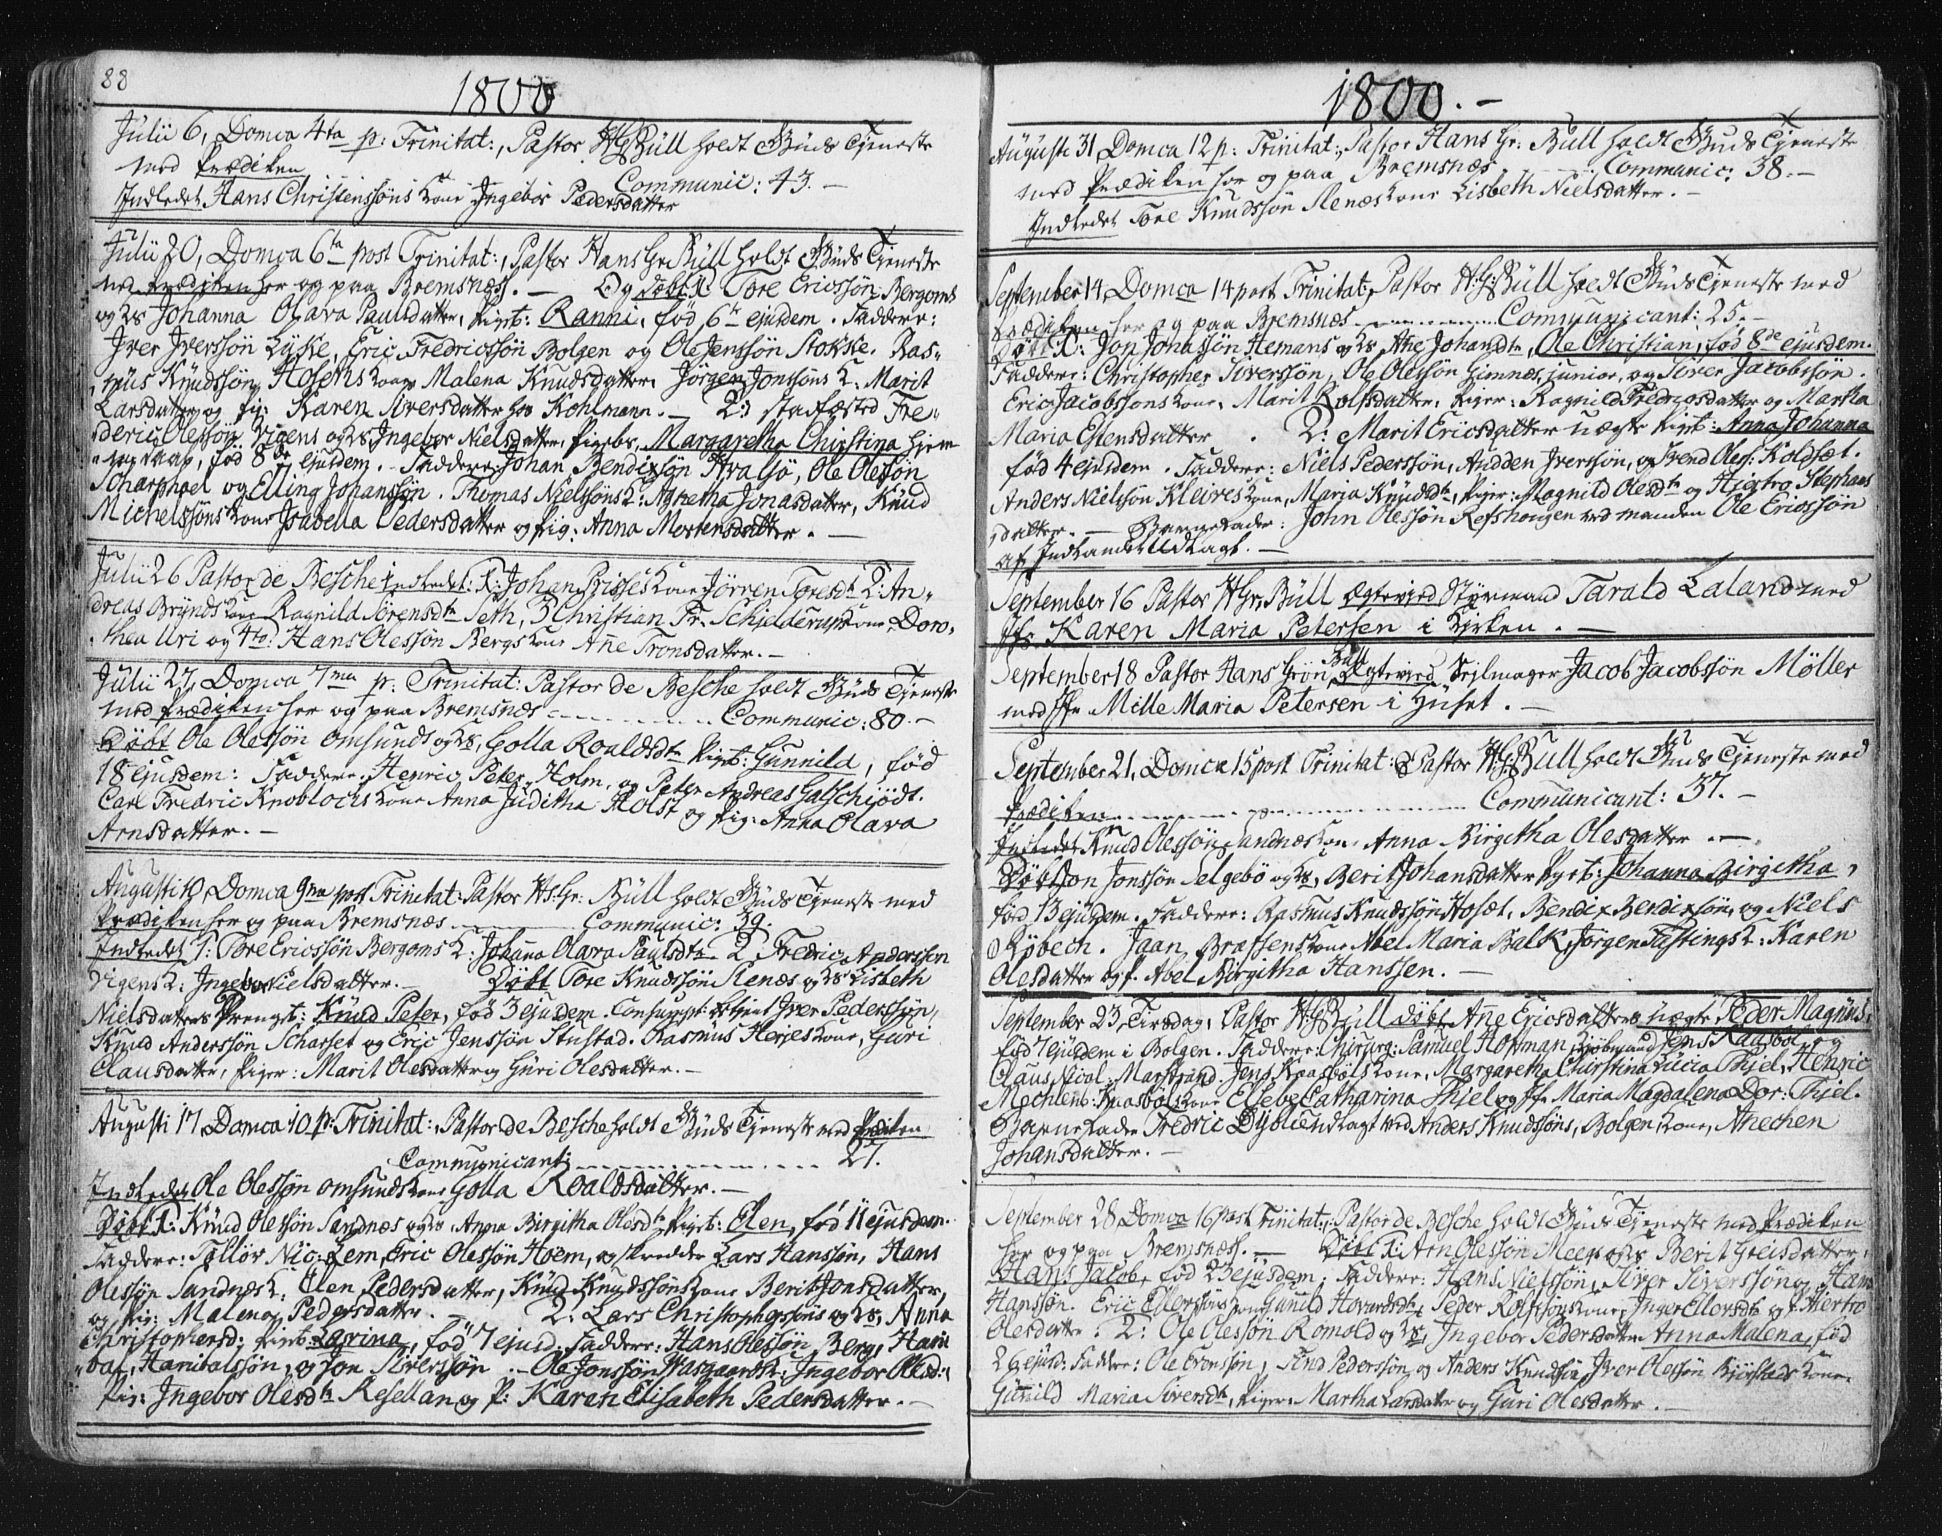 88
1800
Julii 6, Domca 4ta p: Trinitat:, Pastor HGBüll holdt Güds Tjeneste
med Prædiken
Communic: 43. —
Indledet Hans Christenssöns Kone Ingebor Pedersdatter
Julii 20, Domca 6ta post Trinitat:, Pastor Hans Gr Büll holdt Güds Tjeneste
med Prædiken her og paa Bremsnæss. — Og Döbt 1: Tore Ericssön Bergoms
og Hs Johanna Olava Paulsdatter, Pigeb: Ranni, fød 6te ejusdem. Faddere:
Iver Iverssön Lyske, Eric Fredricssön Bolgen og Ole Jenssön Stokke. Ras-
mus Knüdssön Hosets Kone Malena Knudsdatter Jörgen Jonssöns K: Marit
Larsdatter og Pig: Karen Siversdatter hos Kohlmann. — 2: Fre-
deric Olessön Vigens og Hs Ingebor Nielsdatter Pigeb: Margaretha Christina hjem
fød 8de ejusdem. Faddere: Johan Bendixsön Hvalsö, Ole Olesön
og Elling Johanssön. Thomas Nielssöns K: Agnetha Jonasdatter, Knüd
Michelssöns Kone Isabella Pedersdatter og Pig: Anna Mortensdatter. —
Julii 26 Pastor de Besche indledet: 1: Johan Kone Jörren Toresdt 2: An-
dreas Brynds Kone Ragnild Sörensdtr Seth, 3 Christian Fr. Schjelderups Kone Doro-
thea Uri og 4to: Hans Olessön Bergs Kone Añe Tronsdatter. —
Julii 27, Domca 7ma p: Trinitat: Pastor de Besche holdt Güds Tjeneste
med Prædiken her og paa Bremsnæs Communic: 80. —
Döbt Ole Olessön Omsunds og Hs, Golla Roaldsdtr Pigeb: Gunnild, fød
18 ejusdem: Faddere: Henric Peter Holm, og Peter Andreas Gatschiödt.
Carl Fredric Knoblochs Kone Anna Juditha Holst og Pig: Anna Olava
Arnsdatter. —
Augusti 10, Domca 9na post Trinitat: Pastor Hs Gr. Büll holdt Güds Tjeneste med
Prædiken her og paa Bremsnæs Communic: 39.
Indledet 1: Tore Ericssön Bergoms K: Johana Olava Paulsdtr 2 Fredric Anderssen
Vigens K: Ingebor Nielsdatter. — Döbt Tore Knudssön Stenæs og Hs Lisbeth
Nielsdatters Drengeb: Knud Peter, fød 3 ejusdem. Consumpt: Betjent Iver Pederssön,
Knud Anderssön Scharset og Eric Jenssön Stustad. Rasmus Herjes Kone, Guri
Clausdatter, Piger: Marit Olesdatter og Guri Olesdatter. —
Augusti 17 Domca 10 p: Trinitat:, Pastor de Besche holdt Güds Tjeneste med Prædiken
Communicant: 27.
Indledet Ole Olessön Omsunds Kone Golla Roaldsdatter. —
Döbt 1: Knud Olessön Sandnæs og Hs Anna Birgitha Olesdtr Pigeb: Elen, fød 11 ejusdem.
Faddere: Tollör Nic: Lem, Eric Olessön Hoem, og skredder Lars Hanssön, Hans
Olessön Sandnes K: Elen Pedersdatter, Knud Knudssöns Kone Berit Jonsdatter,
og Pig: Malena Pedersdatter. — 2: Lars Christopherssöns og Hs, Anna
Christophersd: Pigeb: Karina, fød 7 ejusd. Faddere: Hans Olessön Berg, Hani
bal, Hanibalssön, og Jon Siverssön. Ole Jonssön Wasgaards K: Ingebor Olesd:,
Pig: Ingebor Olesdtr Resellan og P: Karen Elisabeth Pedersdatter. —
1800. —
Augusti 31 Domca 12 p: Trinitat:, Pastor Hans Gr: Büll holdt Güds Tjeneste
med Prædiken her og paa Bremsnæs Communic: 38. —
Indledet Tore Knudssön Stenæs Kone Lisbeth Nielsdatter. —
September 14, Domca 14 post Trinitat, Pastor H:G:Büll holdt Güds Tjeneste med
Prædiken her og paa Bremsnæs Communicant: 25. —
Döbt 1: Jon Jonassön Hemans og Hs Ane Johansdtr, Ole Christian, fød 8de ejusdem.
Faddere: Christopher Siverssön, Ole Olessön Gimnes, junior, og Siver Jacobssön.
Eric Jacobssöns Kone, Marit Rolfsdatter, Piger: Ragnild Fredricsdatter og Martha
Maria Estensdatter. 2: Marit Ericsdatter uægte Pigeb: Anna Johanna
fød 4 ejusdem. Faddere: Niels Pederssön, Audden Iverssön, og Trend Oless: Koldset.
Anders Nielssön Kleives Kone, Maria Knüdsdtr, Piger: Magnild Olesdtr og Hjertro Stephans
datter. — Barnefader: John Olessön Refshougen ved manden Ole Ericssön
af Indlandet Udlagt. —
September 16 Pastor HGr, Büll Ægteviede Styrmand Tarald Laland med
Jfr Karen Maria Petersen i Kirken. —
September 18 Pastor Hans Grön Büll Ægteviede Sejlmager Jacob Jacobssön Möller
med Jfr Mille Maria Petersen i Hüset. —
September 21, Domca 15 post Trinitat: Pastor HGBüll holdt Güds Tjeneste med
Prædiken Communicant: 37. —
Indledet Knud Olessön Sandnæs Kone Anna Birgitha Olesdatter. —
Döbt Jon Jonssön Selgebö og Hs, Berit Johansdatter Pigeb: Johanna Birgitha,
fød 13 ejusdem. Faddere: Rasmus Knudssön Hoset, Bendix Bendixsön, og Niels
Rÿbech. Jaan Brassens Kone Abel Maria Balk, Jörgen Fastings K: Karen
Olesdatter og P. Abel Birgitha Hanssen. —
September 23, Tirsdag, Pastor HGBüll döbt Añe Ericsdatters uægte Peder Magnus,
fød 7 ejusdem i Bolgen. Faddere: Chirurg: Samuel Hoffman, Kjöbmand Jens Kaasböl, og
Claus Nicol: Marstrand. Jens Kaasböls Kone, Margaretha Christina Lucia Thjel, Henric
Mechlenb: Kaasböls Kone Ellebe Catharina Thjel og Jfr Maria Magdalena Dor: Thjel.
Barnefader Fredric Dyblie Udlagt ved Anders Knudssöns, Bolgen, Kone, Anechen
Johansdatter. —
September 28 Domca 16 post Trinitat:, Pastor de Besche holdt Güds Tjeneste med Prædiken
her og paa Bremsnæss. — Döbt 1: Arn Olessön Meeg og Hs Berit Greisdatter,
Hans Jacob, fød 23 ejusdem; Faddere: Hans Nielssön, Siver Siverssön og Hans
Hanssön. Eric Ellerssöns Kone Gunild Hovardsdtr, Peder Rolfssöns Kone, Inger Ellersdtr og P. Hiertro
Olesdatter. 2: Ole Olessön Romold og Hs, Ingebor Pedersdatter Anna Malena, fød
26 ejusd: Fadder: Ole Tronssön, And Pederssön og Anders Knudssön, Iver Olessön Bjöstads Kone
Gunild Maria Siversdtr, Piger: Martha Larsdatter og Guri Olesdatter. —